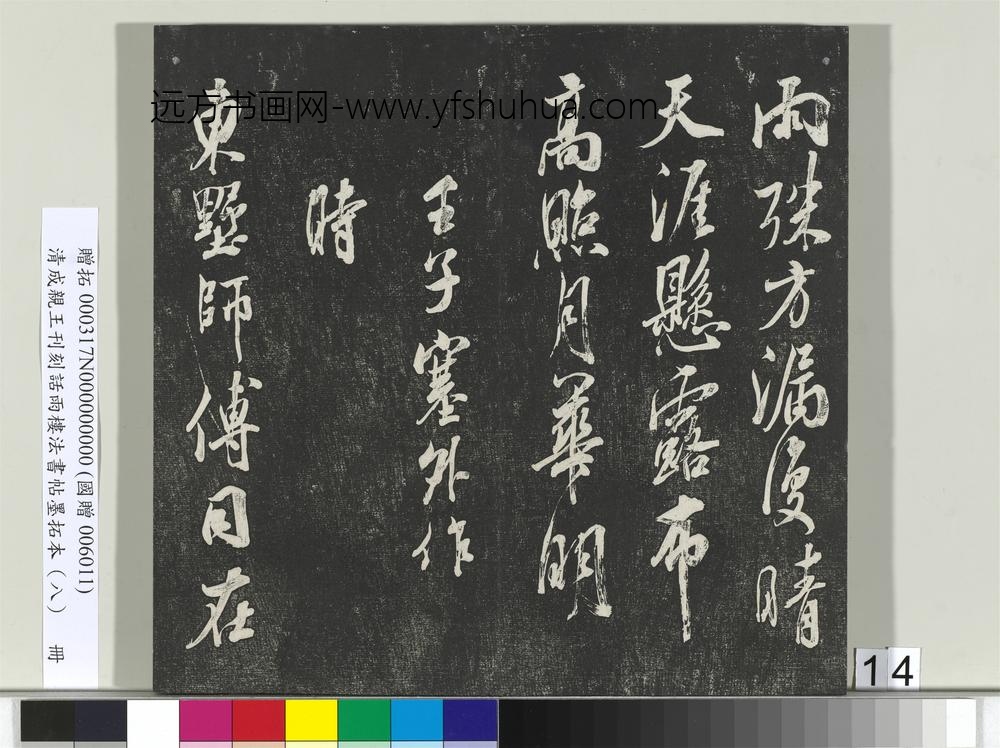 雨殊方漏復晴
天涯懸露布
高照月華明
壬子塞外作
時
東墅師傅同在
远方书画网-www.yfshuhua.com
贈拓 000317N000000000 (國贈 006011)
清成親王刊刻話雨樓法書帖墨拓本(八) 冊
14